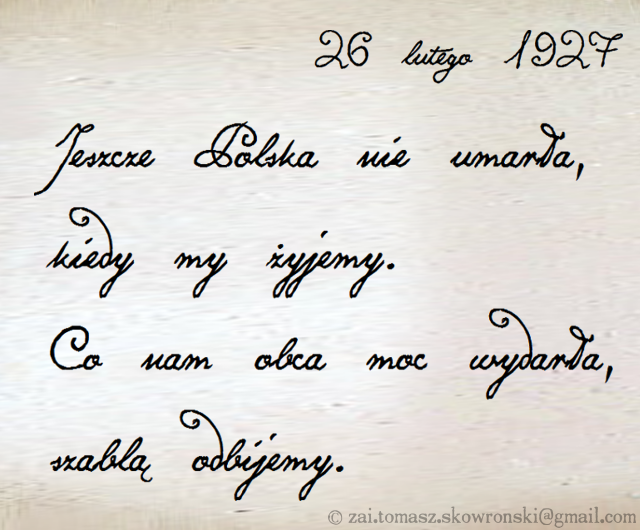 26 lutego 1927
Jeszcze Polska nie umarła,
kiedy my żyjemy.
Co nam obca moc wydarła,
szablą odbijemy.
© zai.tomasz.skowronski@gmail.com